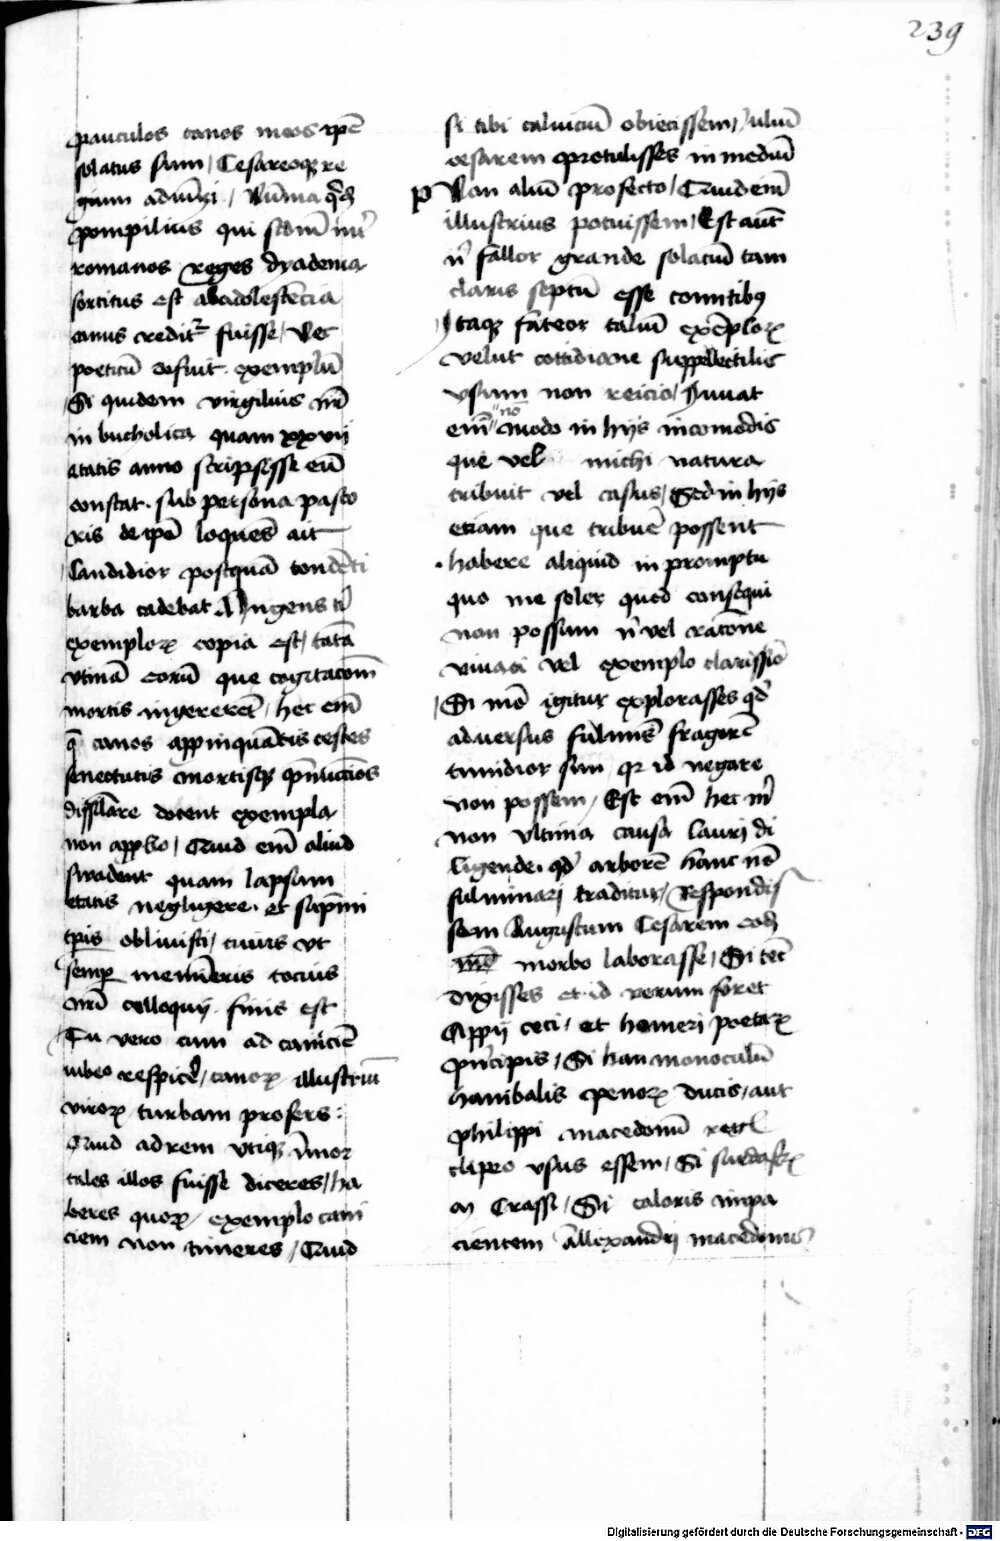 239
pauculos canos meos ip̄e
solatus sum / Cesareoqȝ re
gium adiūxi / Nūma qͥdē
pompilius qui scd̄m int̉
romanos reges dyadema
sortitus est abadolescēcia
canus creditᷣ fuisse / Nec
poeticū defuit exemplū
Si quidem virgilius nr̄
in bucholica quam xxvij
etatis anno scripsisse eū
constat. sub persona pasto
ris de ip̄o loquēs ait
Candidior postquā tondēti
barba cadebat Ingens ti
exemploꝝ copia est / tāta
vtinā eorū que cogitacom̄
mortis ingererēt / hec em̄
qͣ canos appinquātis testes
senectutis mortisqȝ p̄nūccios
dissil̄are docent exempla
non appbo / Quid em̄ aliud
swadent quam lapsum
etatis negligere. et sup̄mi
tp̄is obliuisci / cuius vt
semꝑ memineris tocius
nr̄i colloquij finis est
Tu vero cum ad caniciē
iubeo respicē / canoꝝ illustriū
viroꝝ turbam profers:
Quid ad rem vtiqȝ īmor
tales illos fuisse diceres / ha
beres quoꝝ exemplo cani
ciem non timeres / Quid
si tibi caluiciū obiecissem / iuliū
cesarem protulisses in mediū
p Non aliū profecto / Quid em̄
illustrius potuissem / Est aūt
ni fallor grande solaciū tam
claris septū esse comitibꝯ
Itaqȝ fateor taliū exēploꝝ
velut cottidiane suppellectilis
vsum non reicio / Iuuat
em̄ nō modo in hijs incomodis
que vel michi natura
tribuit vel casus / Sed in hijs
etiam que tribuē possent
habere aliquid in promptu
quo me soler quod consequi
non possum ni vel racōne
viuaci vel exemplo clarissīo
Si me igitur explorasses qd̓
aduersus fulminis fragorē
timidior sum qꝛ id negare
non possem / Est em̄ hec m̄
non vltima causa lauri di
ligende. qd̓ arborē hanc nō
fulminari traditur / Respondis
sem Augustum Cesarem eodē
morbo laborasse / Si cec
dixisses et id verum foret
Appij ceci / et homeri poetaꝝ
pͥncipis / Si han monoculū
hanibalis penoꝝ ducis / aut
philippi macedonū regl
clipeo vsus essem / Si surdastꝝ
m Crassi / Si caloris inpa
cientem allexandri macedonis